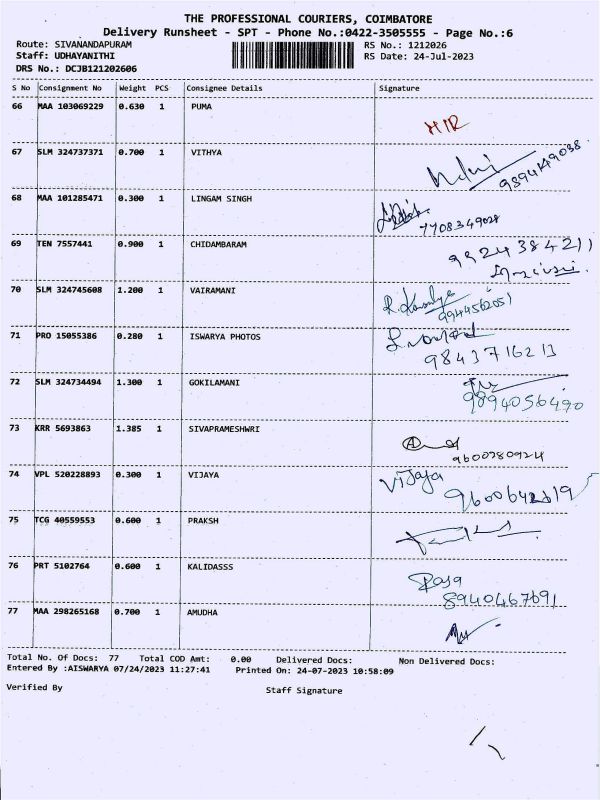 THE PROFESSIONAL COURIERS, COIMBATORE
Delivery Runsheet - SPT - Phone No.:0422-3505555 - Page No.:6
Route: SIVANANDAPURAM RS No.: 1212026
Staff: UDHAYANITHI RS Date: 24-Jul-2023
DRS No.: DCJB121202606
S No Consignment No Weight PCS Consignee Details Signature
66 MAA 103069229 0.630 1 PUMA
67 SLM 324737371 0.700 1 VITHYA
9894149038
68 MAA 101285471 0.300 1 LINGAM SINGH
7708349028
69 TEN 7557441 0.900 1 CHIDAMBARAM 9924384211
70 SLM 324745608 1.200 1 VAIRAMANI
9944562051
71 PRO 15055386 0.280 1 ISWARYA PHOTOS
9843716213
72 SLM 324734494 1.300 1 GOKILAMANI
9894056490
73 KRR 5693863 1.385 1 SIVAPRAMESHWRI
9600780924
74 VPL 520228893 0.300 1 VIJAYA Vijaya
75 TCG 40559553 0.600 1 PRAKSH
76 PRT 5102764 0.600 1 KALIDASSS
Roja
8940467691
77 MAA 298265168 0.700 1 AMUDHA
Total No. Of Docs: 77 Total COD Amt: 0.00 Delivered Docs: Non Delivered Docs:
Entered By :AISWARYA 07/24/2023 11:27:41 Printed On: 24-07-2023 10:58:09
Verified By Staff Signature